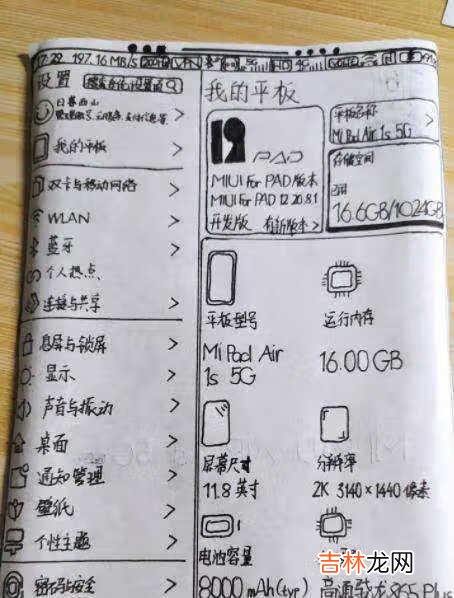 设置
日暮西山
我的平板
双卡与移动网络
WLAN
蓝牙
个人热点
连接与共享
息屏与锁屏
显示
声音与振动
桌面
通知管理
壁纸
个性主题
密码与安全
我的平板
12 PAD
MIUI For PAD版本
MIUI For PAD 12 20.8.1
开发版 有新版本>
平板名称
Mi Pad Air 1s 5G
存储空间
已用
16.6GB/1024GB
平板型号
Mi Pad Air
1s 5G
运行内存
16.00 GB
屏幕尺寸
11.8 英寸
分辨率
2K 3140×1440 像素
电池容量
8000 mAh(typ)
高通骁龙865 Plus
吉林龙网